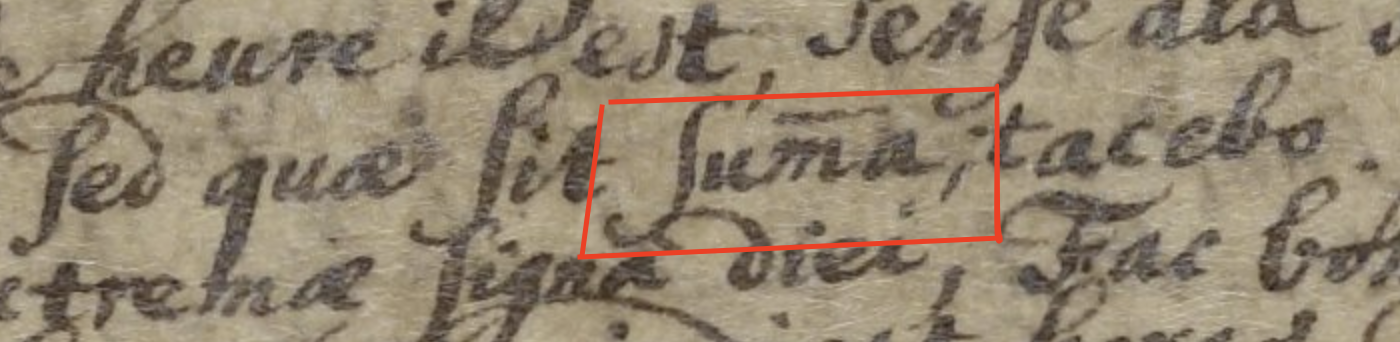 heure il est, Sense ata
Sed quæ sit sum̄a, tacebo.
extremæ signa diei, Fac bo